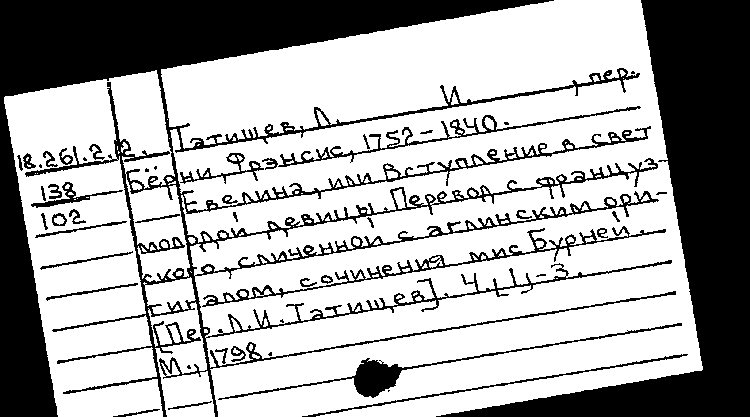 18.261.2.12. Татищев, Л. И. , пер.
138 Бёрни, Фрэнсис, 1752-1840.
102 Евелина, или Вступление в свет
молодой девицы. Перевод с француз-
ского, сличенной с аглинским ори-
гиналом, сочинения мис Бурней.
[Пер. Л.И. Татищев]. Ч. [1]-3.
М., 1798.